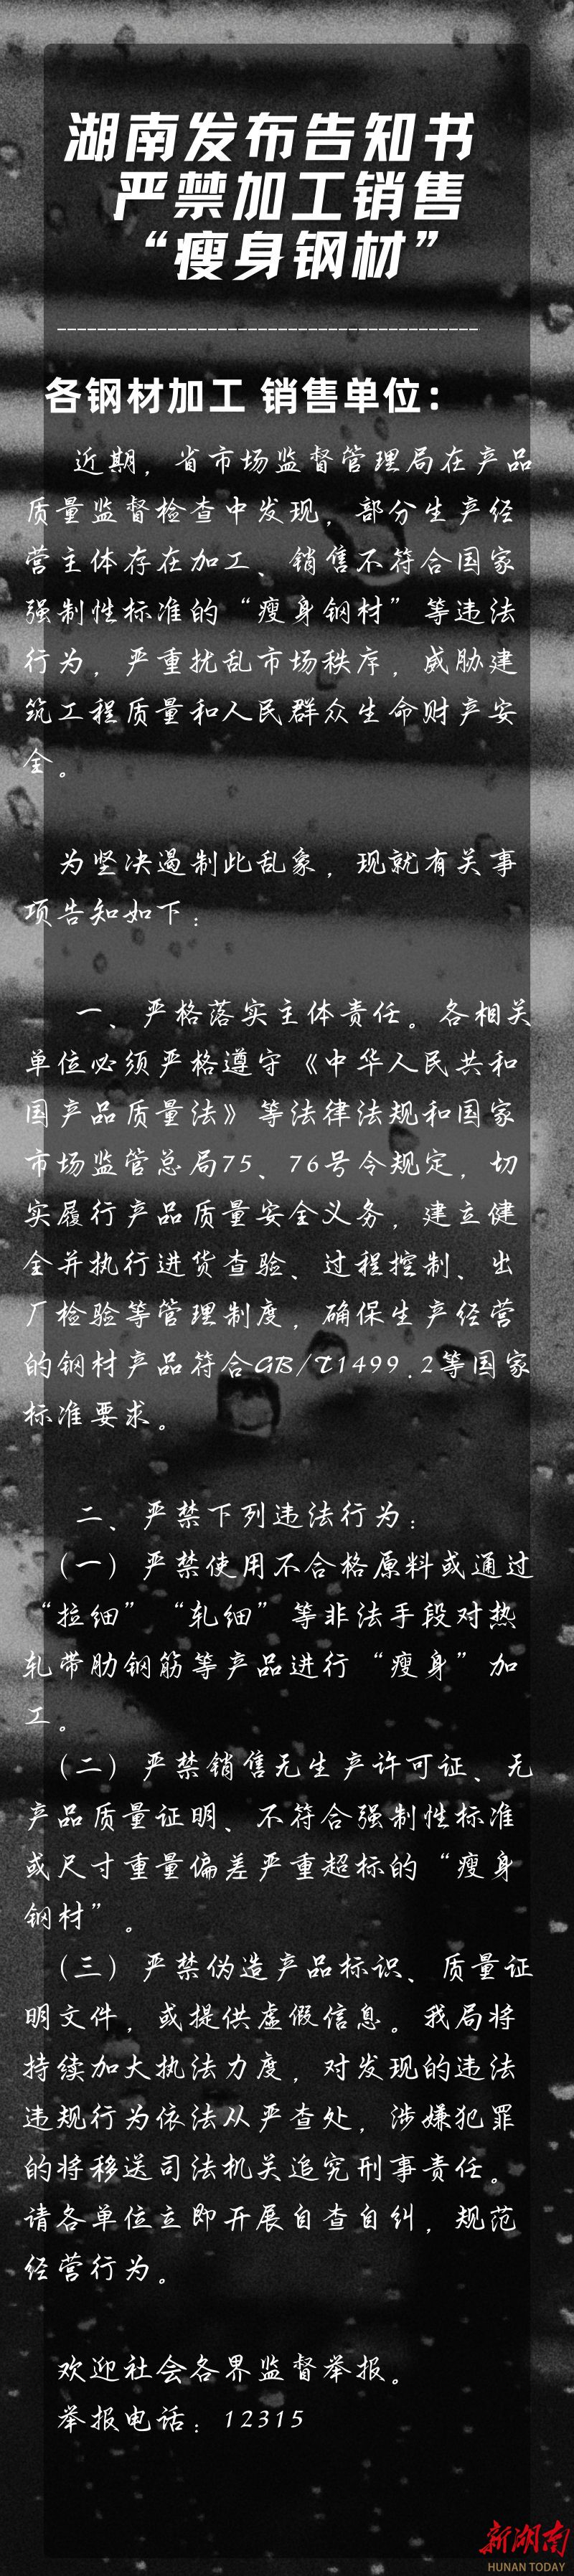 湖南发布告知书
严禁加工销售
“瘦身钢材”
各钢材加工 销售单位：
近期，省市场监督管理局在产品
质量监督检查中发现，部分生产经
营主体存在加工、销售不符合国家
强制性标准的“瘦身钢材”等违法
行为，严重扰乱市场秩序，威胁建
筑工程质量和人民群众生命财产安
全。
为坚决遏制此乱象，现就有关事
项告知如下：
一、严格落实主体责任。各相关
单位必须严格遵守《中华人民共和
国产品质量法》等法律法规和国家
市场监管总局75、76号令规定，切
实履行产品质量安全义务，建立健
全并执行进货查验、过程控制、出
厂检验等管理制度，确保生产经营
的钢材产品符合GB/T1499.2等国家
标准要求。
二、严禁下列违法行为：
（一）严禁使用不合格原料或通过
“拉细”“轧细”等非法手段对热
轧带肋钢筋等产品进行“瘦身”加
工。
（二）严禁销售无生产许可证、无
产品质量证明、不符合强制性标准
或尺寸重量偏差严重超标的“瘦身
钢材”。
（三）严禁伪造产品标识、质量证
明文件，或提供虚假信息。我局将
持续加大执法力度，对发现的违法
违规行为依法从严查处，涉嫌犯罪
的将移送司法机关追究刑事责任。
请各单位立即开展自查自纠，规范
经营行为。
欢迎社会各界监督举报。
举报电话：12315
新湖南
HUNAN TODAY